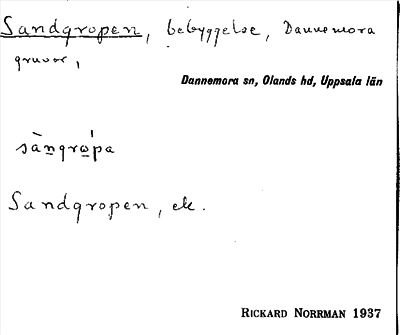 Sandgropen, bebyggelse, Dannemora
gruvor,
Dannemora sn, Olands hd, Uppsala län
sàngrópa
Sandgropen, ek.
RICKARD NORRMAN 1937